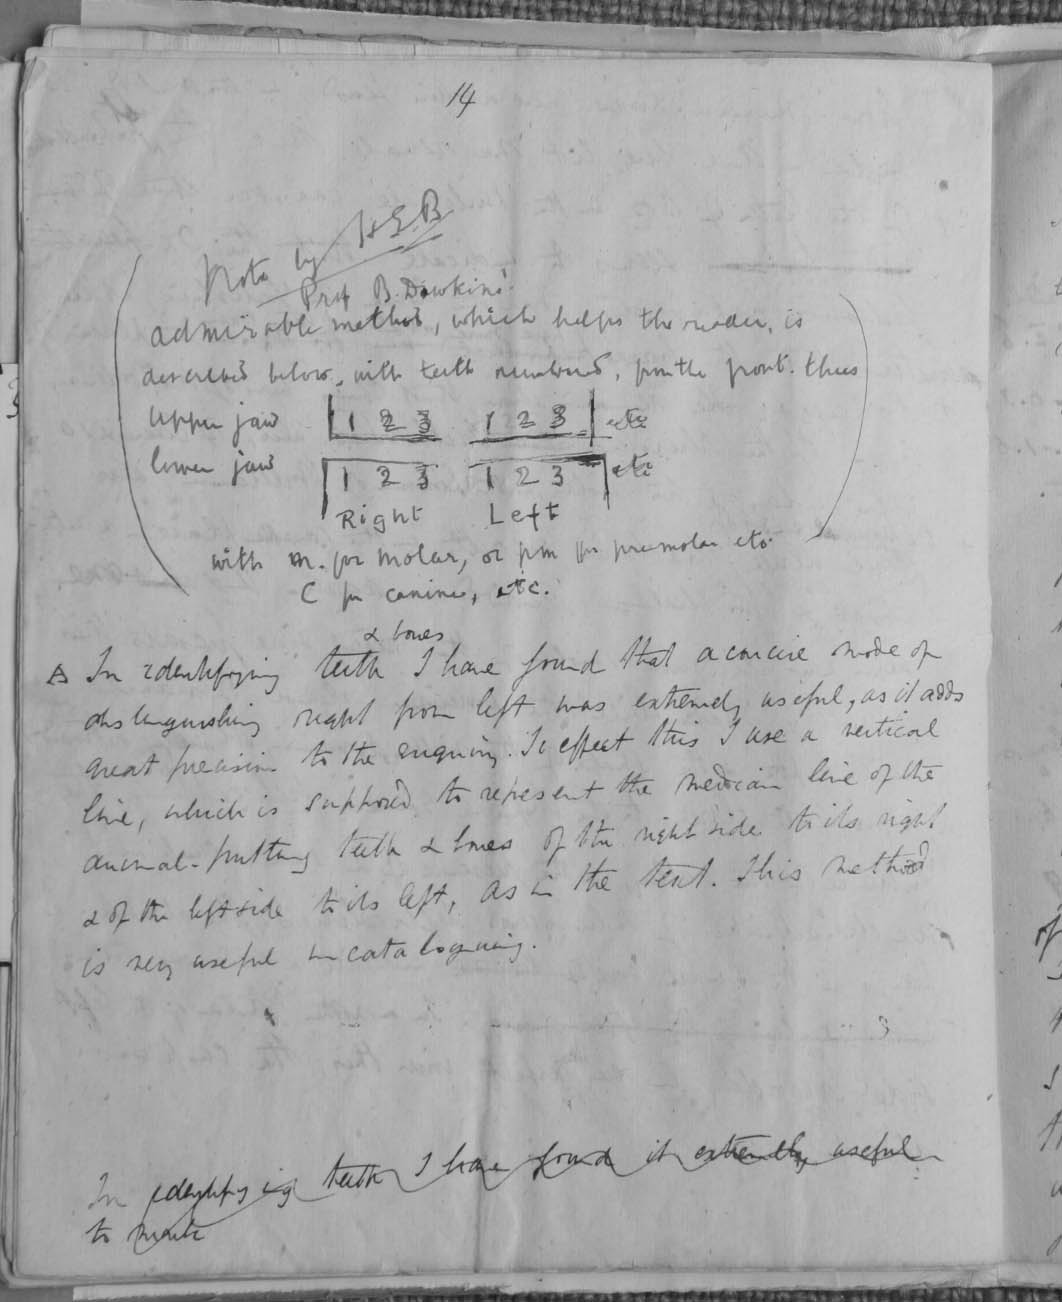 14
Note by H.E.B
Prof B. Dawkins'
admirable method, which helps the reader, is
described below, with teeth numbered, from the front. thus
Upper jaw 1 2 3 1 2 3 etc
lower jaw 1 2 3 1 2 3 etc
Right Left
with m. for molar, or pm for premolar etc.
C for canines, etc.
& bones
A In identifying teeth I have found that a concise mode of
distinguishing right from left was extremely useful, as it adds
great precision to the enquiry. To effect this I use a vertical
line, which is supposed to represent the median line of the
animal - putting teeth & bones of the right side to its right
& of the left side to its left, as in the text. This method
is very useful in cataloguing.
3
In identifying teeth I have found it extremely useful
to